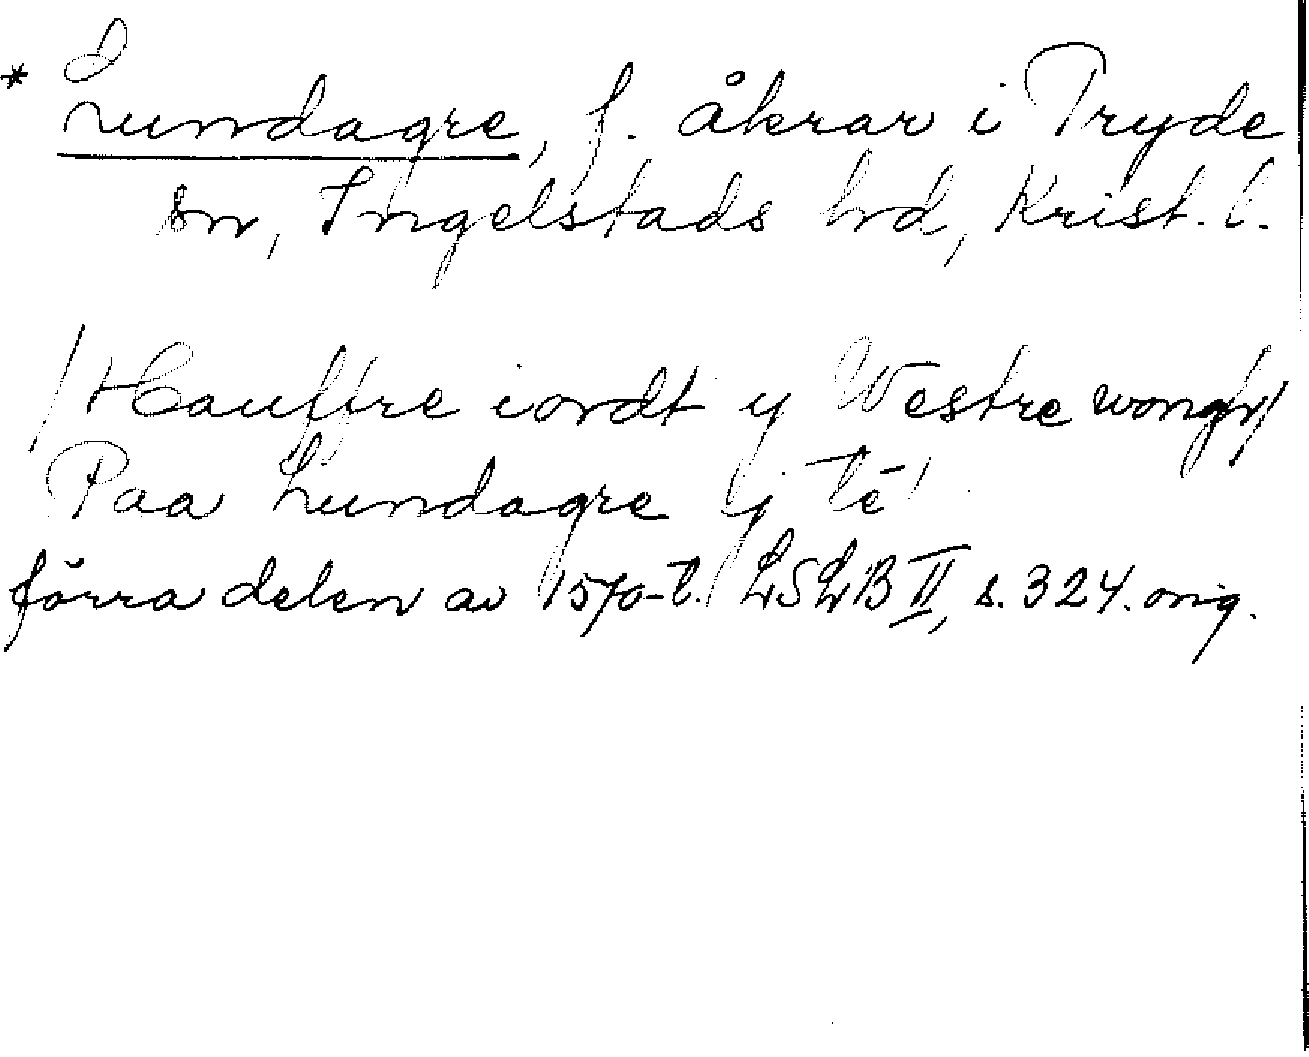 * Lundagre, f. åkrar i Tryde
sn, Ingelstads hd, Krist. l.
/Hauffre iordt y Westre wong/
Paa Lundagre ij tē
förra delen av 1570-t. LSLB II, s. 324. orig.